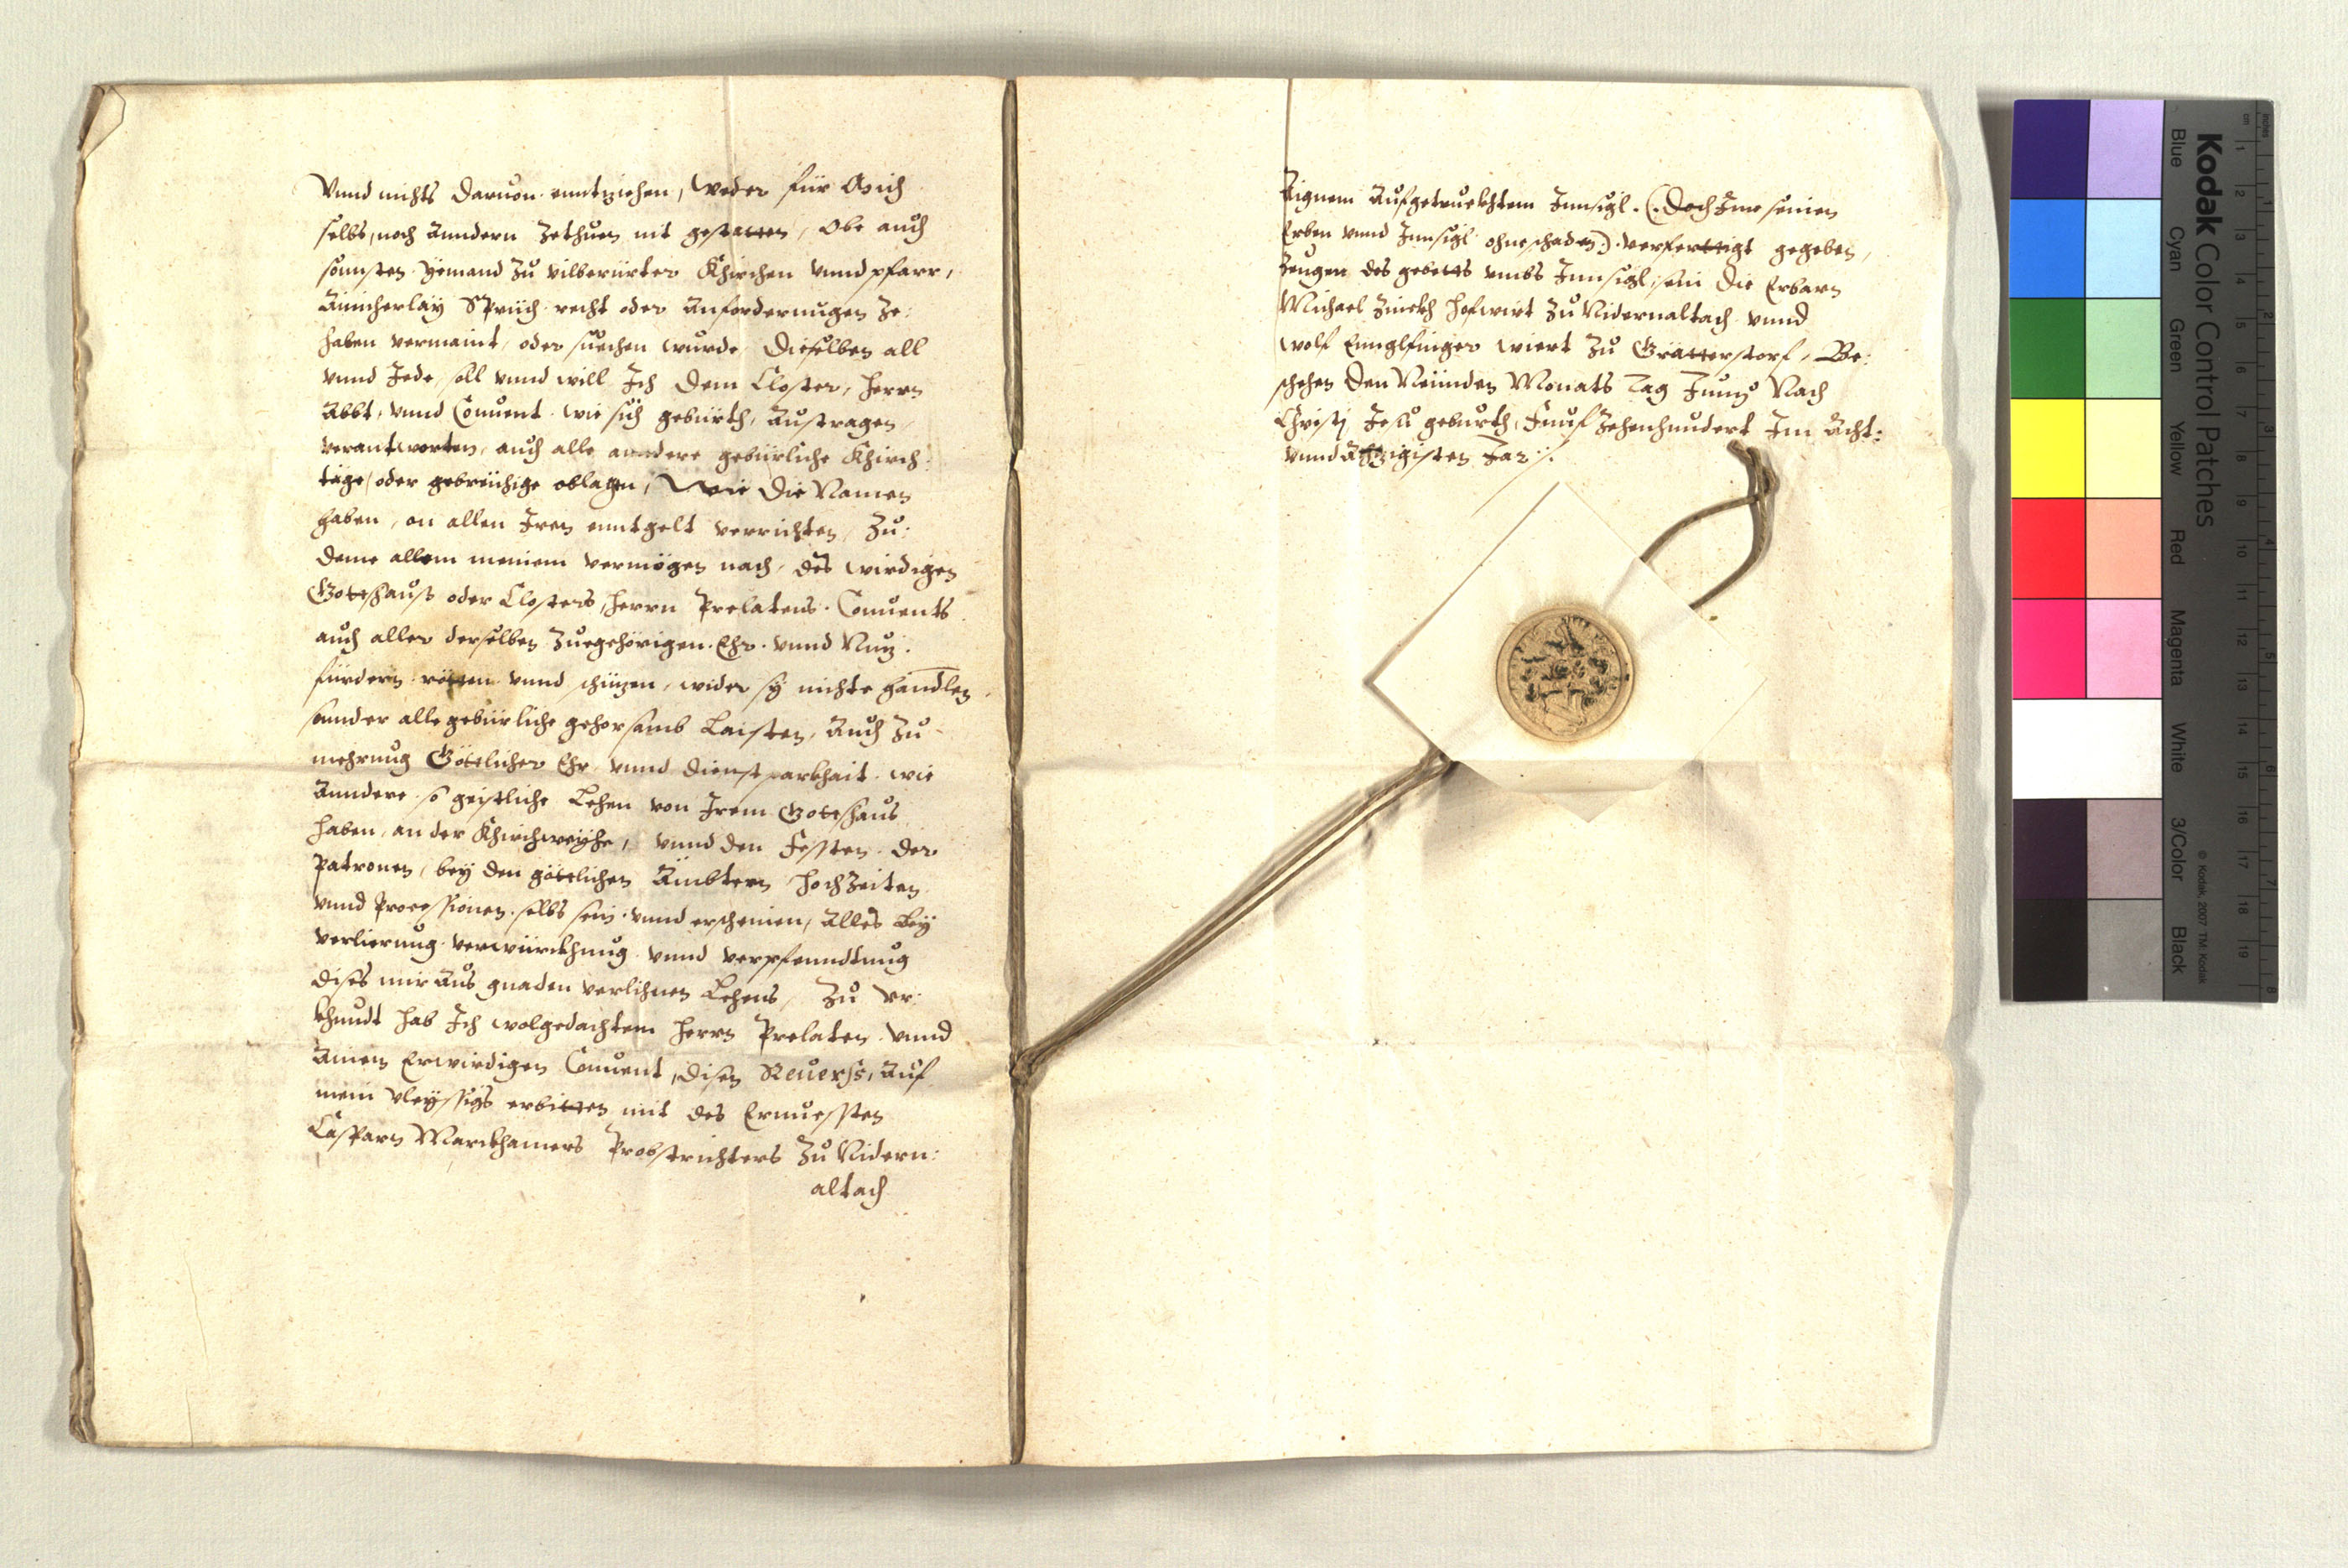 Vnnd nichts daruon enntziehen, weder für Mich
selbs, noch Anndern Zethuen nit gestatten, Obe auch
sonnsten Yemand Zu vilberürter Khirchen vnnd pfarr,
Ainicherlaÿ Sprüch recht oder Anforderungen Ze:
haben vermaint, oder suechen wurde, Dieselben all
vnnd Jede, soll vnnd will Ich dem Closter, Herrn
Abbt, vnnd Conuent wie sich gebürth, Austragen,
verantworten, auch alle anndere gebürliche Khirch:
täge, oder gebreüchige oblagen, Wie die Namen
haben, on allen Iren enntgelt verrichten, Zu:
deme allem meinem vermögen nach, des wirdigen
Gottshauß oder Closters, Herrn Prelatens Conuents
auch aller derselben Zuegehörigen Ehr vnnd Nuz
fürdern retten vnnd schüzen, wider sÿ nichts handlen
sonnder alle gebürliche gehorsamb Laisten, Auch Zu
mehrung Götlicher Ehr vnnd dienstparkhait wie
Anndere so geistliche Lehen von Irem Gottshaus
haben, an der Khirchweÿhe, vnnd den Fessten der
Patronen, beÿ den götlichen Ämbtern HochZeiten
vnnd Processionen selbs sein vnnd erscheinen, Alles Beÿ
verlierung verwürckhung vnnd verpfenndtung
dises mir Aus gnaden verlihnen Lehens, Zu Vr:
khundt hab Ich wolgedachtem Herrn Prelaten vnnd
Ainem Erwirdigen Conuent, disen Reuerss, Auf
mein vleÿssigs erbitten mit des Ernuessten
Casparn Marckhamers Probstrichters Zu Nidern:
altach
Aignem Aufgetruckhtem Innsigl. (: doch Ime seinen
Erben vnnd Innsigl ohne schaden :) verferttigt gegeben,
Zeugen des gebetts vmbs Innsigl, sein die Erbarn
Michael Zinckh Hofwirt Zu Nidernaltach vnnd
Wolf Ennglfinger wiert Zu Grätterstorf, Be:
schehen den Neünden Monats Tag Junÿ Nach
Christj Jesu geburth, Funfzehenhundert Im Acht:
vnnd Achtzigisten Jar ./.
Kodak Color Control Patches
Blue Cyan Green Yellow Red Magenta White 3/Color Black
© Kodak, 2007 TM: Kodak
inches 1 2 3 4 5 6 7 8
cm 1 2 3 4 5 6 7 8 9 10 11 12 13 14 15 16 17 18 19